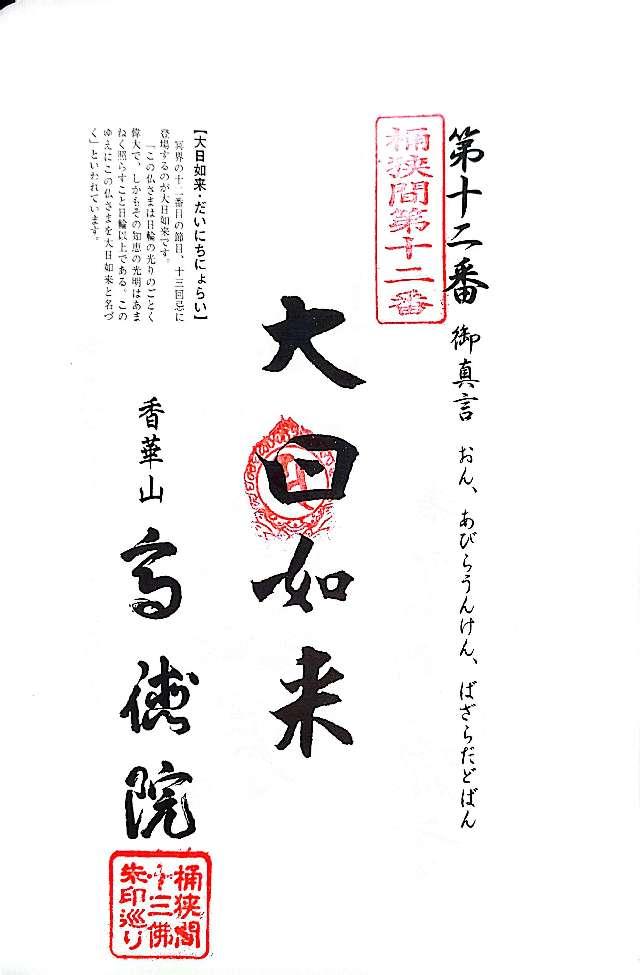 第十二番 御真言 おん、あびらうんけん、ばざらだどばん
桶狭間第十二番
大日如来
【大日如来・だいにちにょらい】
冥界の十二番目の節目、十三回忌に
登場するのが大日如来です。
「この仏さまは日輪の光りのごとく
偉大で、しかもその知恵の光明はあま
ねく照らすこと日輪以上である。この
ゆえにこの仏さまを大日如来と名づ
く」といわれています。
香華山
高徳院
桶狭間
十三佛
朱印巡り